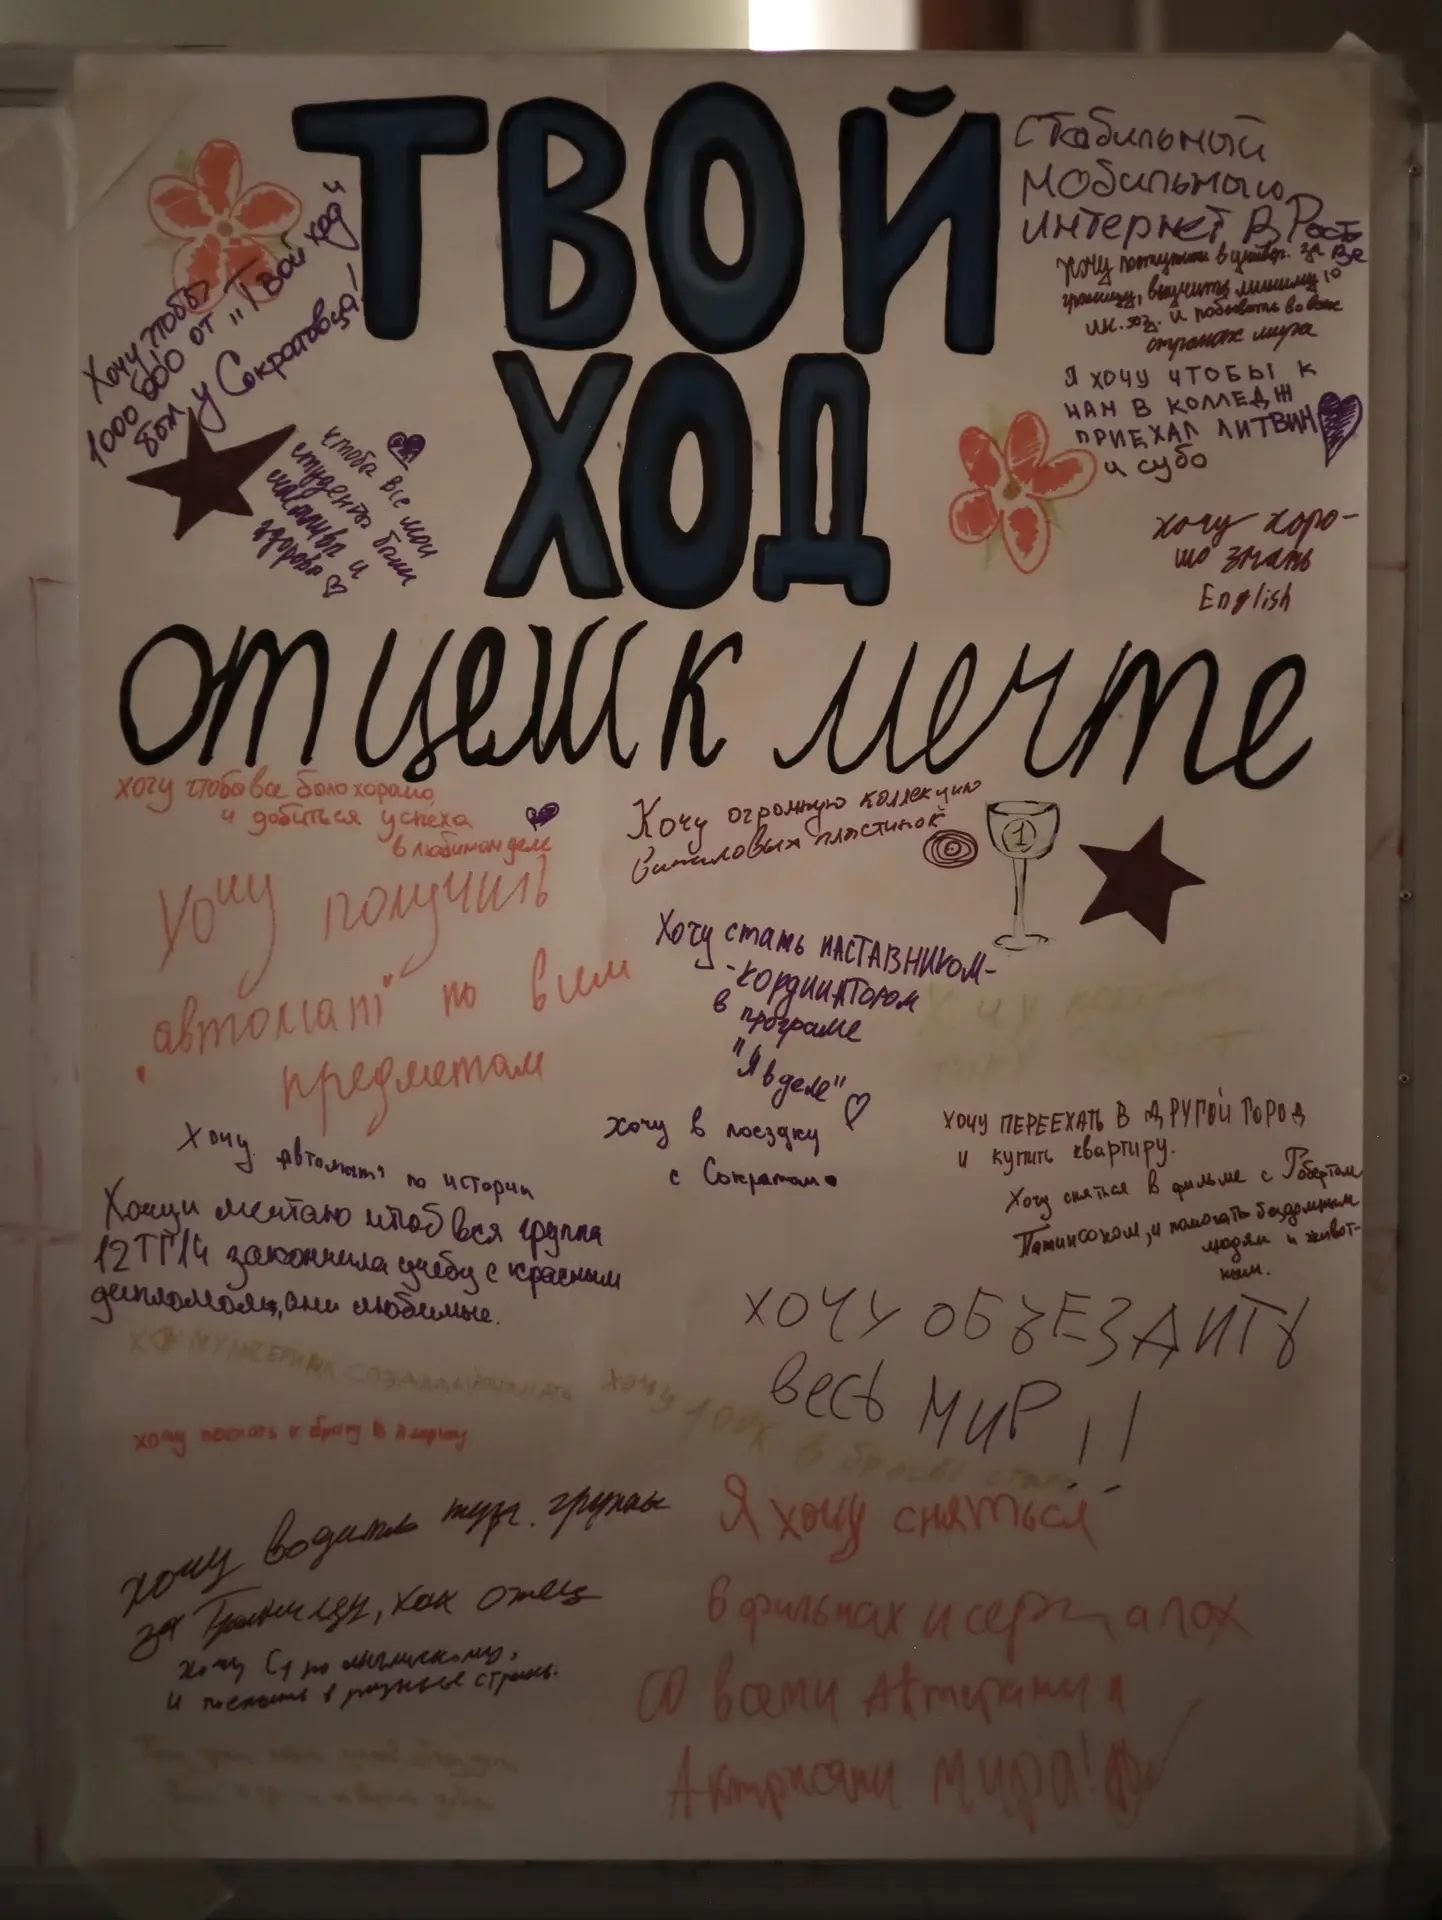 ТВОЙ
ХОД
от идеи к мечте
Хочу чтобы
1000 000 от "Твой ход"
был у Сократовца!
чтобы все мои
студенты были
счастливы и
здоровы
Стабильный
мобильный
интернет в Росто
ве
Хочу поступить в универ. за
границу, выучить минимум 10
ин. яз. и побывать во всех
странах мира
Я ХОЧУ ЧТОБЫ К
НАМ В КОЛЛЕДЖ
ПРИЕХАЛ ЛИТВИН
и субо
хочу хоро-
шо знать
English
хочу чтобы все было хорошо,
и добиться успеха
в любимом деле
Хочу огромную коллекцию
виниловых пластинок
1
Хочу получить
"автомат" по всем
предметам
Хочу стать НАСТАВНИКОМ-
-кординатором
в програме
"Я в деле"
хочу в поездку
с Сократом
Хочу автомат по истории
ХОЧУ ПЕРЕЕХАТЬ В ДРУГОЙ ГОРОД
и купить квартиру.
Хочу сняться в фильме с Робертом
Патинсоном, и помогать бездомным
людям и живот-
ным.
мечтаю чтоб вся группа
12ТГ14 закончила учёбу с красным
дипломом, они любимые.
ХОЧУ ОБЪЕЗДИТЬ
весь МИР!!
хочу поехать к брату в
хочу водить тур. группы
за границу, как отец
хочу C1 по английскому,
и поехать в разные страны.
Я хочу сняться
в фильмах и сериалах
со всеми Актерами и
Актрисами мира!